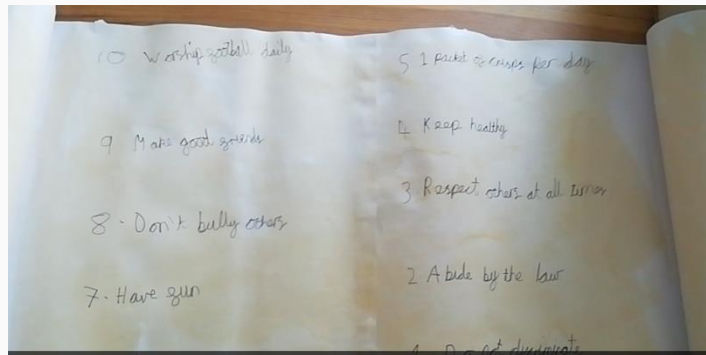 10 Worship football daily
9 Make good friends
8. Don't bully others
7. Have fun
5 1 packet of crisps per day
4 Keep healthy
3 Respect others at all times
2 Abide by the law
1 Do not discriminate